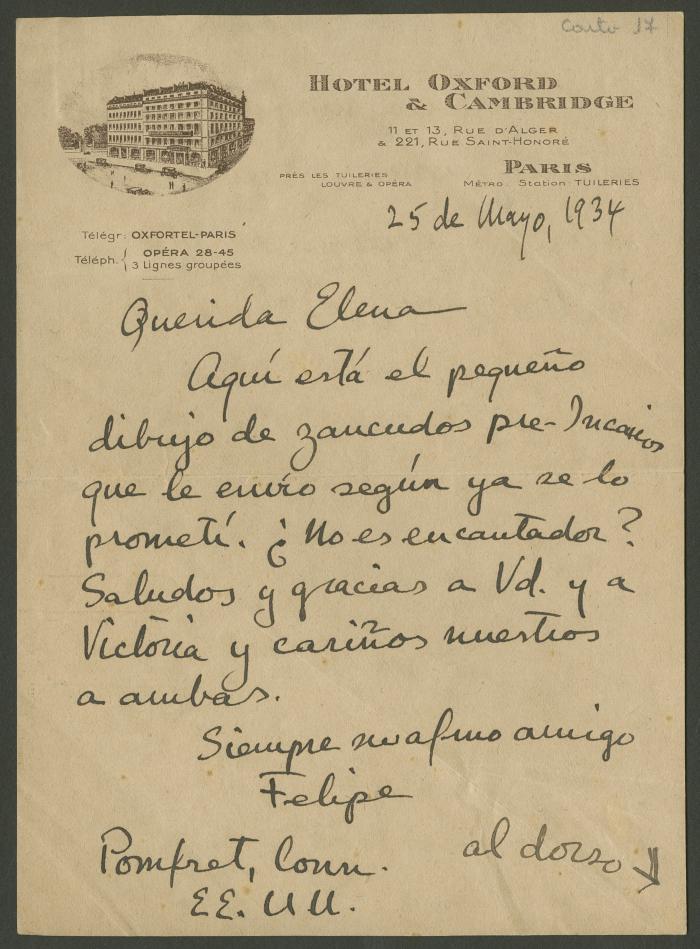 Carta 17
HOTEL OXFORD
& CAMBRIDGE
11 ET 13, RUE D'ALGER
& 221, RUE SAINT-HONORÉ
PRÈS LES TUILERIES
LOUVRE & OPÉRA
PARIS
MÉTRO: Station: TUILERIES
25 de Mayo, 1934
Télégr: OXFORTEL-PARIS
Téléph. { OPÉRA 28-45
3 Lignes groupées
Querida Elena
Aquí está el pequeño
dibujo de zancudos pre-Incarios
que le envío según ya se lo
prometí. ¿No es encantador?
Saludos y gracias a Vd. y a
Victòria y cariños nuestros
a ambas.
Siempre su afmo amigo
Felipe
Pomfret, Conn.
EE. UU.
al dorso